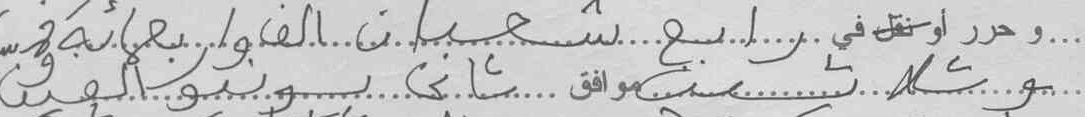 و حرر أو نقل في رابع شعبان الف وأربعمائة وخمس
وثلاثين موافق ثاني يونيو الفين